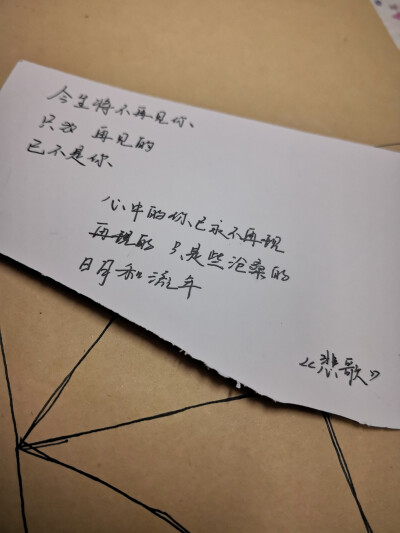 今生将不再见你、
只为 再见的
已不是你、
心中的你已永不再现
再现的 只是些沧桑的
日月和流年
《悲歌》